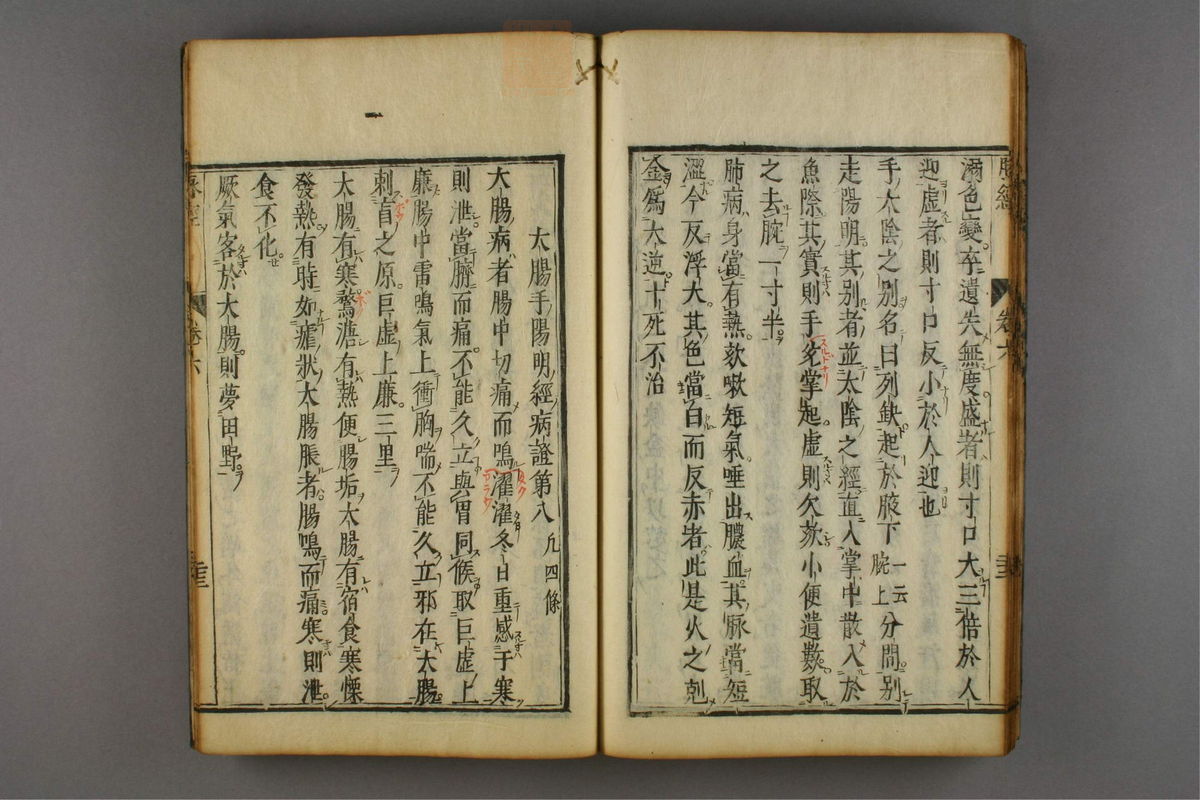 溺色變卒遺失無度盛者則寸口大三倍於人
迎虛者則寸口反小於人迎也
手太陰之別名曰列缺起於腋下一云腕上分間別
走陽明其別者並太陰之經直入掌中散入於
魚際其實則手兌掌起虛則欠欬小便遺數取
之去腕一寸半
肺病身當有熱欬嗽短氣唾出膿血其脈當短
澀今反浮大其色當白而反赤者此是火之剋
金爲大逆十死不治
大腸手陽明經病證第八凡四條
大腸病者腸中切痛而鳴濯濯冬日重感于寒
則泄當臍而痛不能久立與胃同候取巨虛上
廉腸中雷鳴氣上衝胸喘不能久立邪在大腸
刺肓之原巨虛上廉三里
大腸有寒鶩溏有熱便腸垢大腸有宿食寒慄
發熱有時如瘧狀大腸脹者腸鳴而痛寒則泄
食不化
厥氣客於大腸則夢田野
卷六